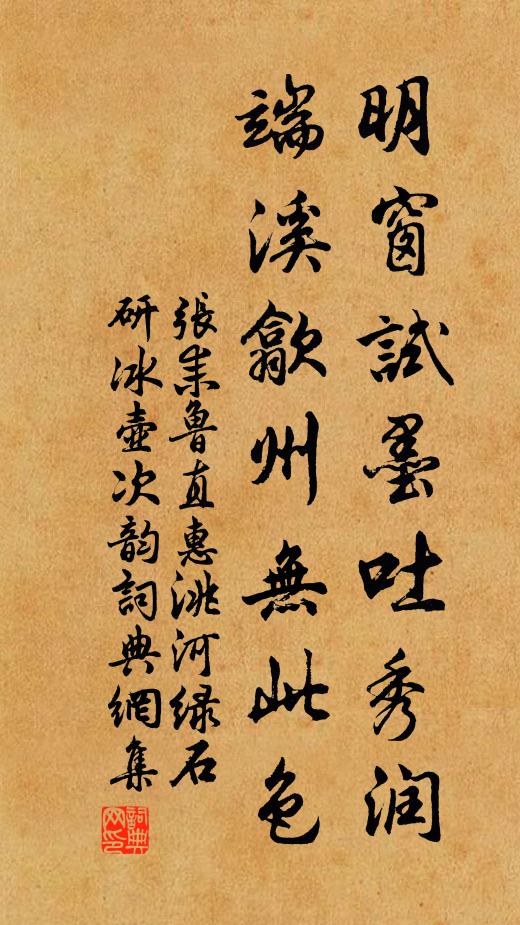 明窗試墨吐秀润
端溪歙州無此色
張耒魯直惠洮河緑石
研冰壺次韵詞典網集
詞典网印